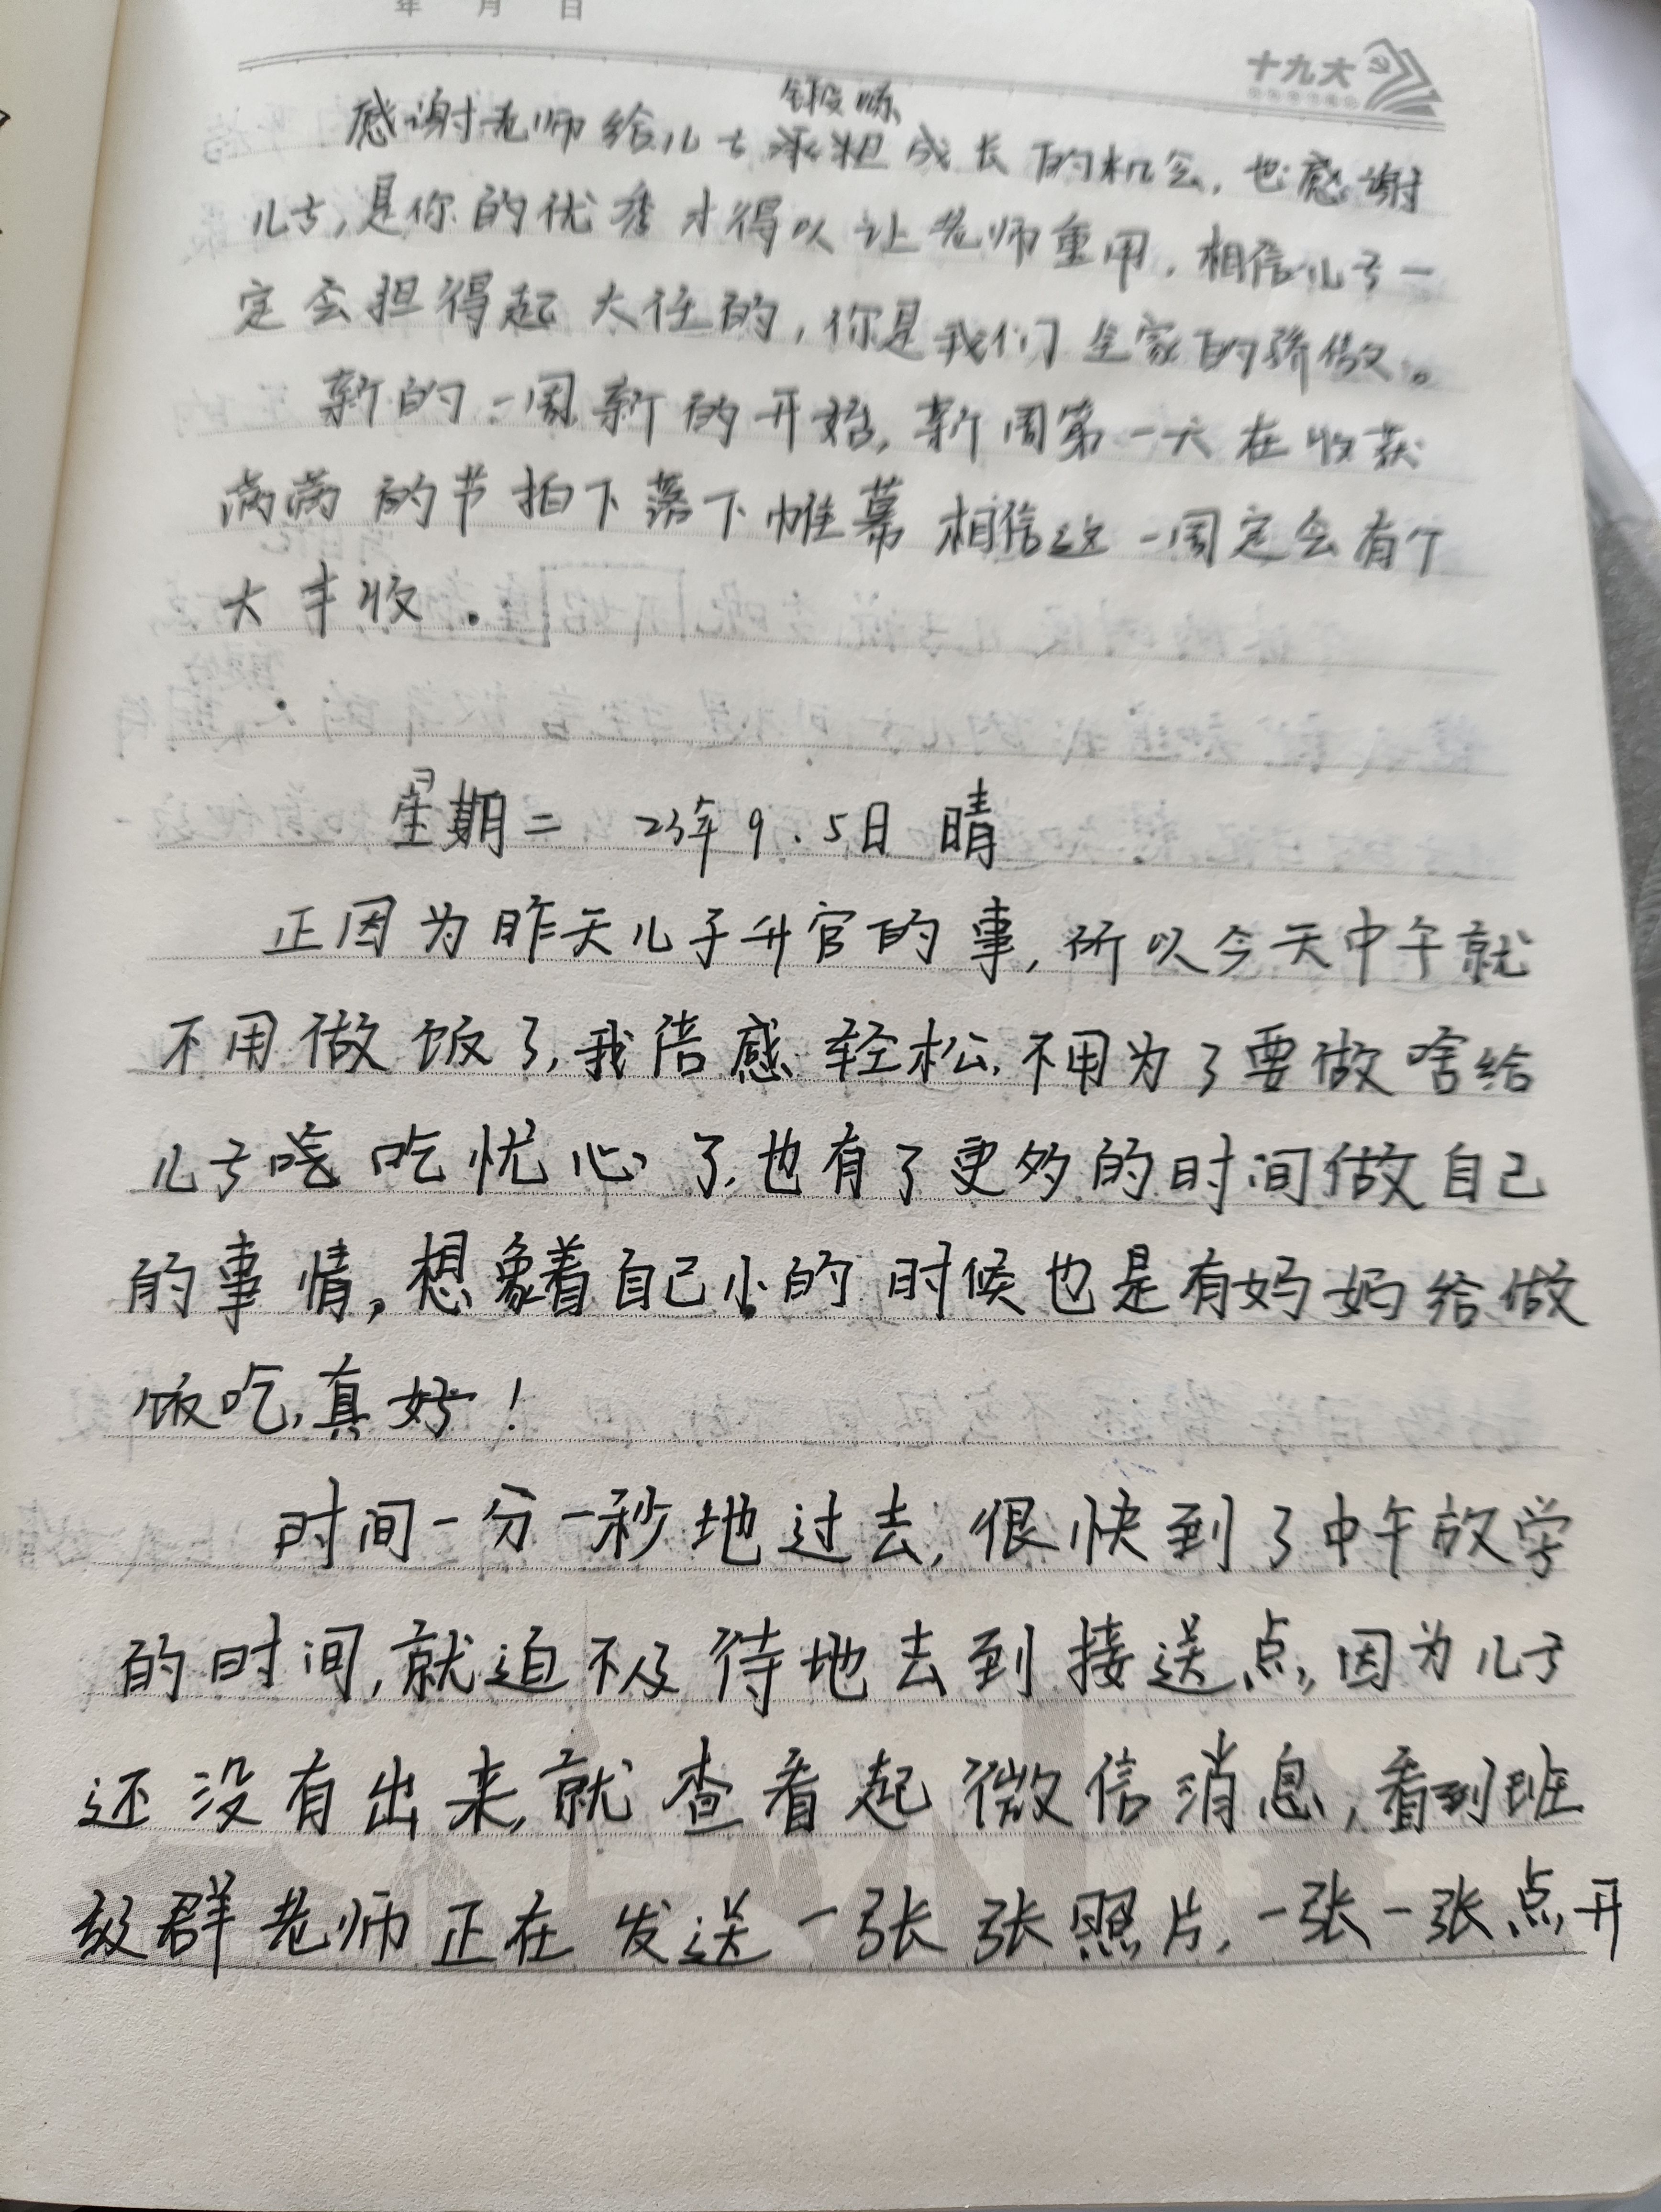 年 月 日
十九大
锻炼
感谢老师给儿子承担成长的机会,也感谢
儿子,是你的优秀才得以让老师重用,相信儿子一
定会担得起大任的,你是我们全家的骄傲。
新的一周新的开始,新周第一天在收获
满满的节拍下落下帷幕相信这一周定会有个
大丰收.
星期二 23年9.5日 晴
正因为昨天儿子升官的事,所以今天中午就
不用做饭了,我倍感轻松,不用为了要做啥给
儿子吃忧心了,也有了更多的时间做自己
的事情,想象着自己小的时候也是有妈妈给做
饭吃,真好!
时间一分一秒地过去,很快到了中午放学
的时间,就迫不及待地去到接送点,因为儿子
还没有出来,就查看起微信消息,看到班
级群老师正在发送一张张照片,一张一张点开